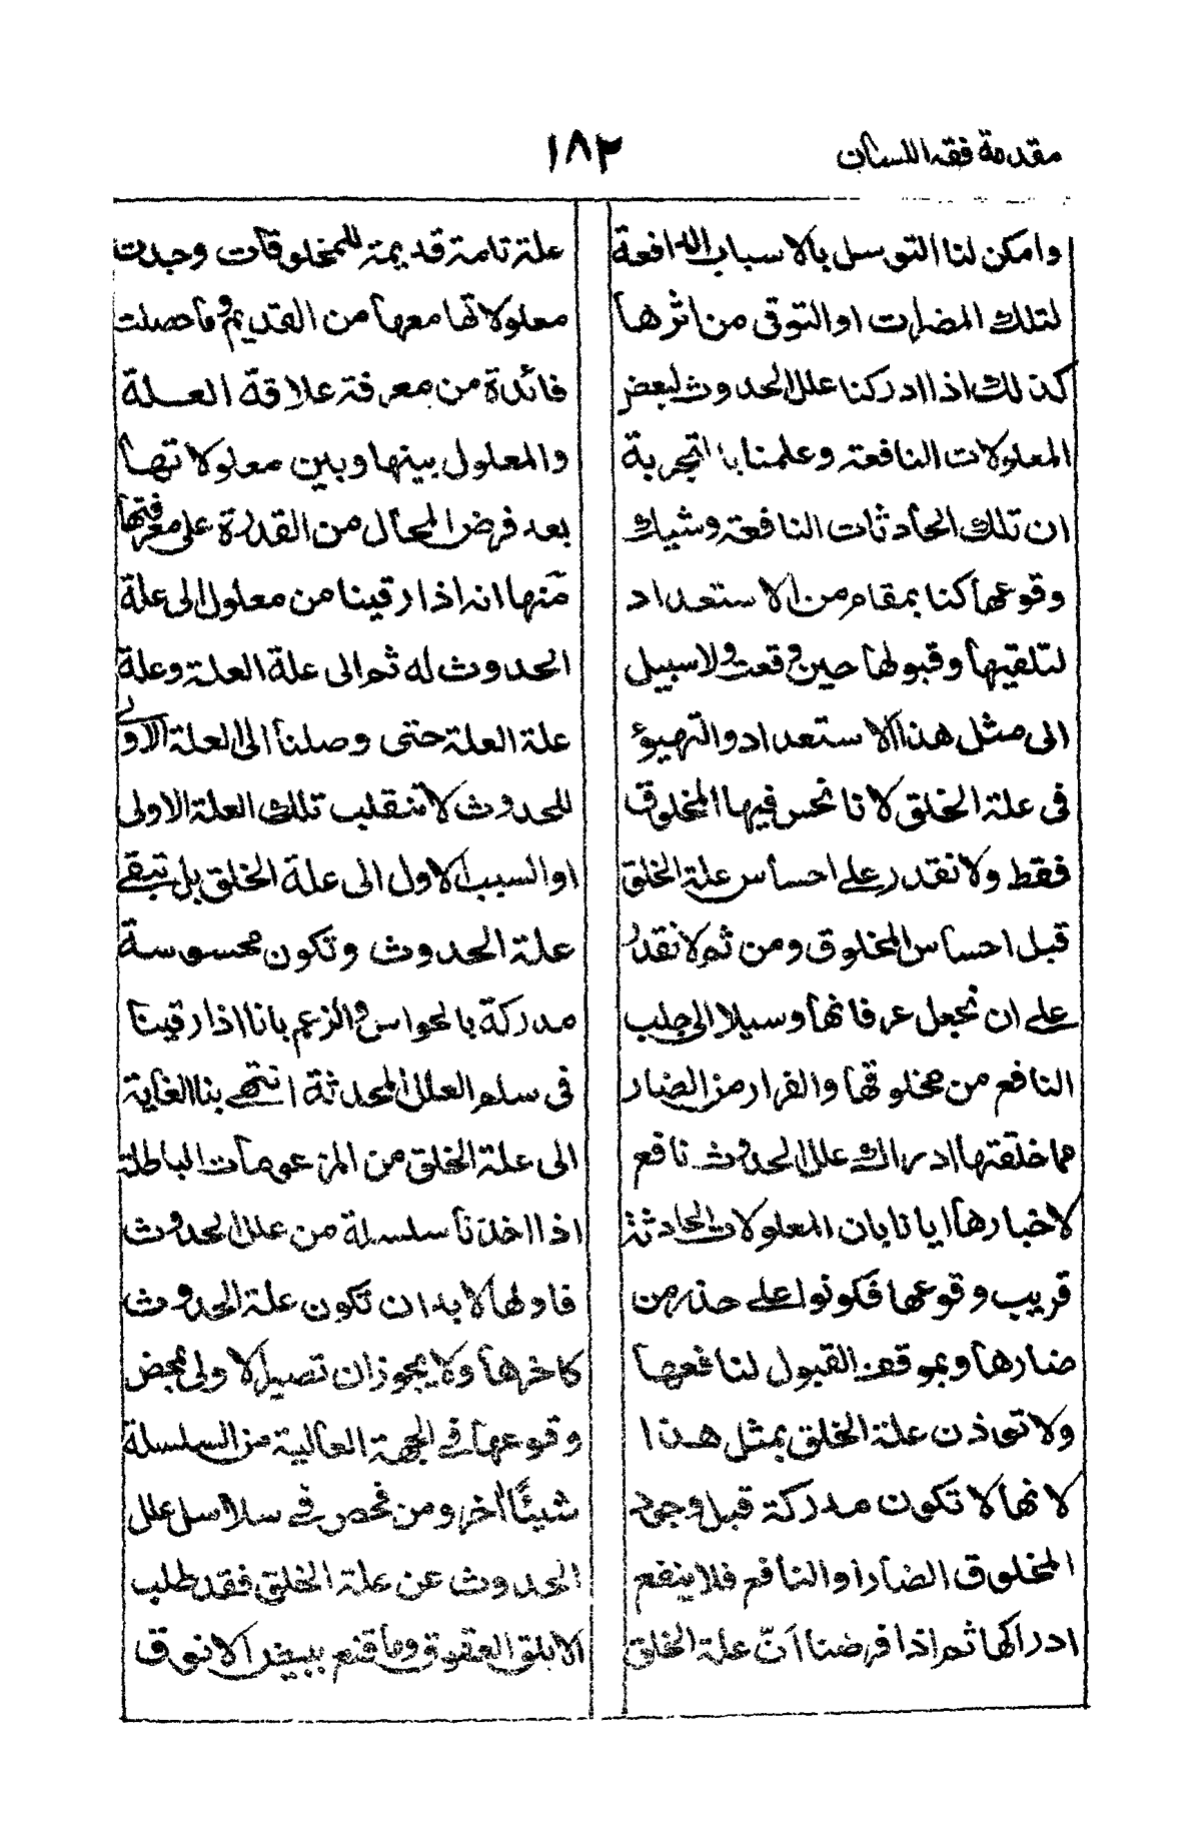 مقدمة فقه اللسان
١٨٢
وامكن لنا التوسل بالاسباب الدافعة
لتلك المضارت او التوقى من اثرها
كذلك اذا ادركنا علل الحدوث لبعض
المعلولات النافعة وعلمنا بالتجربة
ان تلك الحادثات النافعة وشيك
وقوعها كنا بمقام من الاستعداد
لتلقيها وقبولها حين وقعت ولا سبيل
الى مثل هذا الاستعداد والتهيؤ
فى علة الخلق لانا نحس فيها المخلوق
فقط ولا نقدر على احساس علة الخلق
قبل احساس المخلوق ومن ثم لا نقدر
على ان نجعل عرفانها وسيلا الى جلب
النافع من مخلوقها والفرار من الضار
مما خلقتها ادراك علل الحدوث نافع
لاخبارها ايانا بان المعلولات الحادثة
قريب وقوعها فكونوا على حذر من
ضارها وبموقف القبول لنافعها
ولا تؤذن علة الخلق بمثل هذا
لانها لا تكون مدركة قبل وجود
المخلوق الضار او النافع فلا ينفع
ادراكها ثم اذا فرضنا انّ علة الخلق
علة تامة قديمة للمخلوقات وجدت
معلولاتها معها من القديم وما حصلت
فائدة من معرفة علاقة العلة
والمعلول بينها وبين معلولاتها
بعد فرض المحال من القدرة على معرفتها
منها انه اذا رقينا من معلول الى علة
الحدوث له ثم الى علة العلة وعلة
علة العلة حتى وصلنا الى العلة الاولى
للحدوث لا تنقلب تلك العلة الاولى
او السبب الاول الى علة الخلق بل تبقى
علة الحدوث وتكون محسوسة
مدركة بالحواس والزعم بانا اذا رقينا
فى سلم العلل المحدثة انتهى بنا الغاية
الى علة الخلق من المزعومات الباطلة
اذا اخذنا سلسلة من علل الحدوث
فاولها لا بد ان تكون علة الحدوث
كاخرها ولا يجوز ان تصير الاولى بمحض
وقوعها فى الجهة العالية من السلسلة
شيئًا اخر ومن فحص فى سلاسل علل
الحدوث عن علة الخلق فقد طلب
الابلق العقوق وما قنع ببيض الانوق